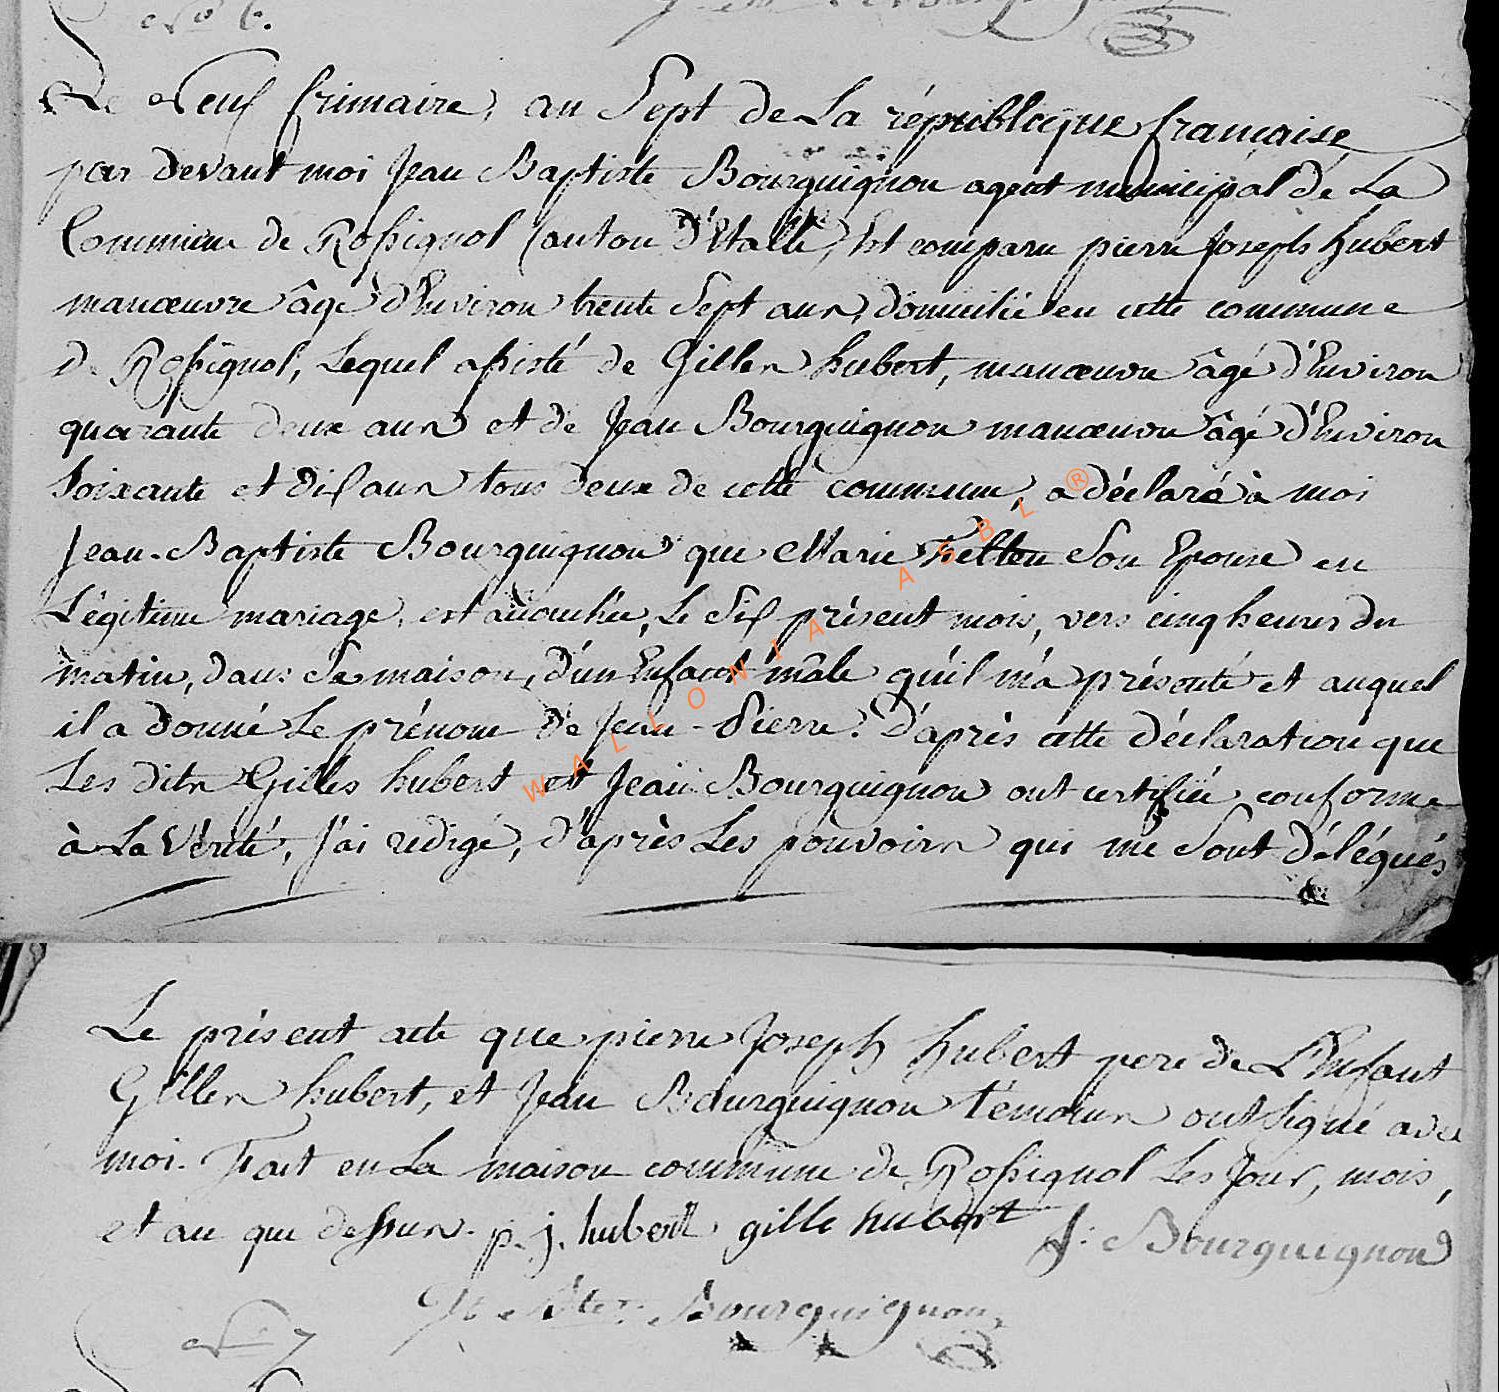 No 6.
Le Neuf frimaire, an Sept de La république française
par devant moi Jean Baptiste Bourguignon agent municipal de La
Commune de Rossignol Canton d'Etalle, Est comparu pierre Joseph hubert
manœuvre âgé d'Environ trente Sept ans, domicilié en cette commune
de Rossignol, Lequel assisté de Gilles hubert, manœuvre âgé d'Environ
quarante deux ans et de Jean Bourguignon manœuvre âgé d'Environ
Soixante et dix ans tous deux de cette commune, a déclaré à moi
Jean-Baptiste Bourguignon que Marie Son Epouse en
Légitime mariage, est accouchée, Le Six présent mois, vers cinq heures du
matin, dans Sa maison, d'un Enfant mâle qu'il m'a présenté et auquel
il a donné Le prénom de Jean-Pierre. D'après cette déclaration que
Les dits Gilles hubert et Jean Bourguignon ont certifié conforme
à La Vérité, J'ai redigé, d'après Les pouvoirs qui me Sont délégués
Le présent acte que pierre Joseph hubert pere de L'Enfant
Gilles hubert, et Jean Bourguignon témoins ont Signé avec
moi. Fait en La maison commune de Rossignol Les Jour, mois,
et an que dessus. p. j. hubert gille hubert J. Bourguignon
Jn Bte Bourguignon
No 7
WALLONIA ASBL ®